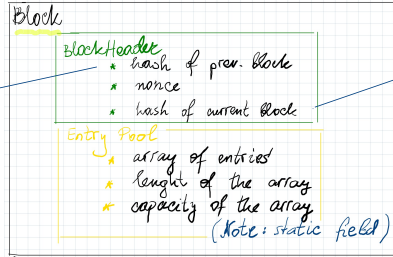 Block
BlockHeader
* hash of prev. block
* nonce
* hash of current block
Entry Pool
* array of entries
* lenght of the array
* capacity of the array
(Note: static field)